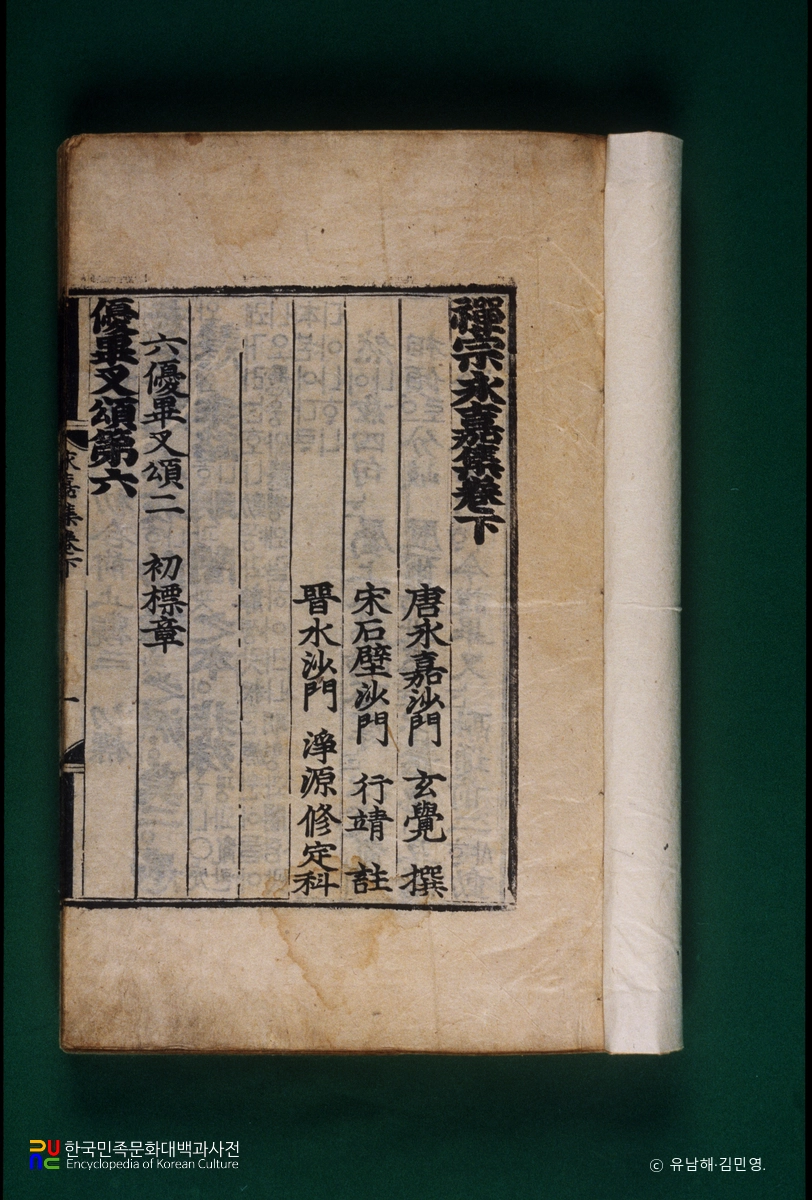 禪宗永嘉集卷下
唐永嘉沙門 玄覺 撰
宋石壁沙門 行靖 註
晉水沙門 淨源修定科
六優畢叉頌二 初標章
優畢叉頌第六
永嘉集卷下
一
한국민족문화대백과사전
Encyclopedia of Korean Culture
© 유남해·김민영.